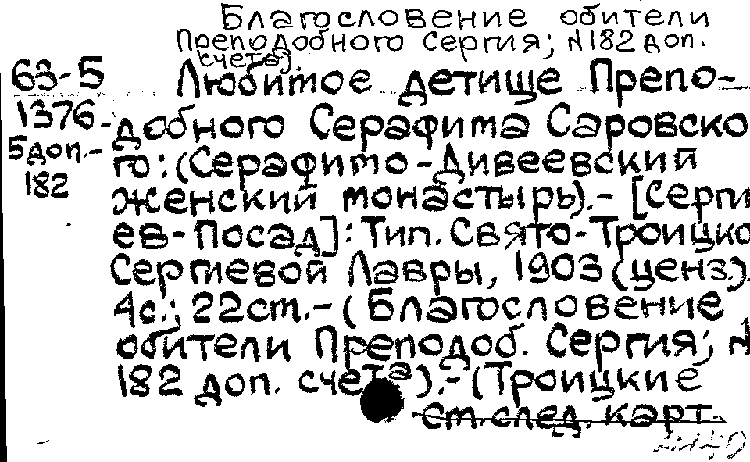 Благословение обители
Преподобного Сергия; N182 доп.
счета).
63-5 Любимое детище Препо-
1376- добного Серафима Саровско
5доп.- го: (Серафимо-Дивеевский
182 женский монастырь).- [Серги
ев-Посад]: Тип. Свято-Троицко
Сергиевой Лавры, 1903 (ценз.).
4с.; 22ст.- (Благословение
обители Преподоб. Сергия; N
182 доп. счета).- (Троицкие
ст. след. карт.